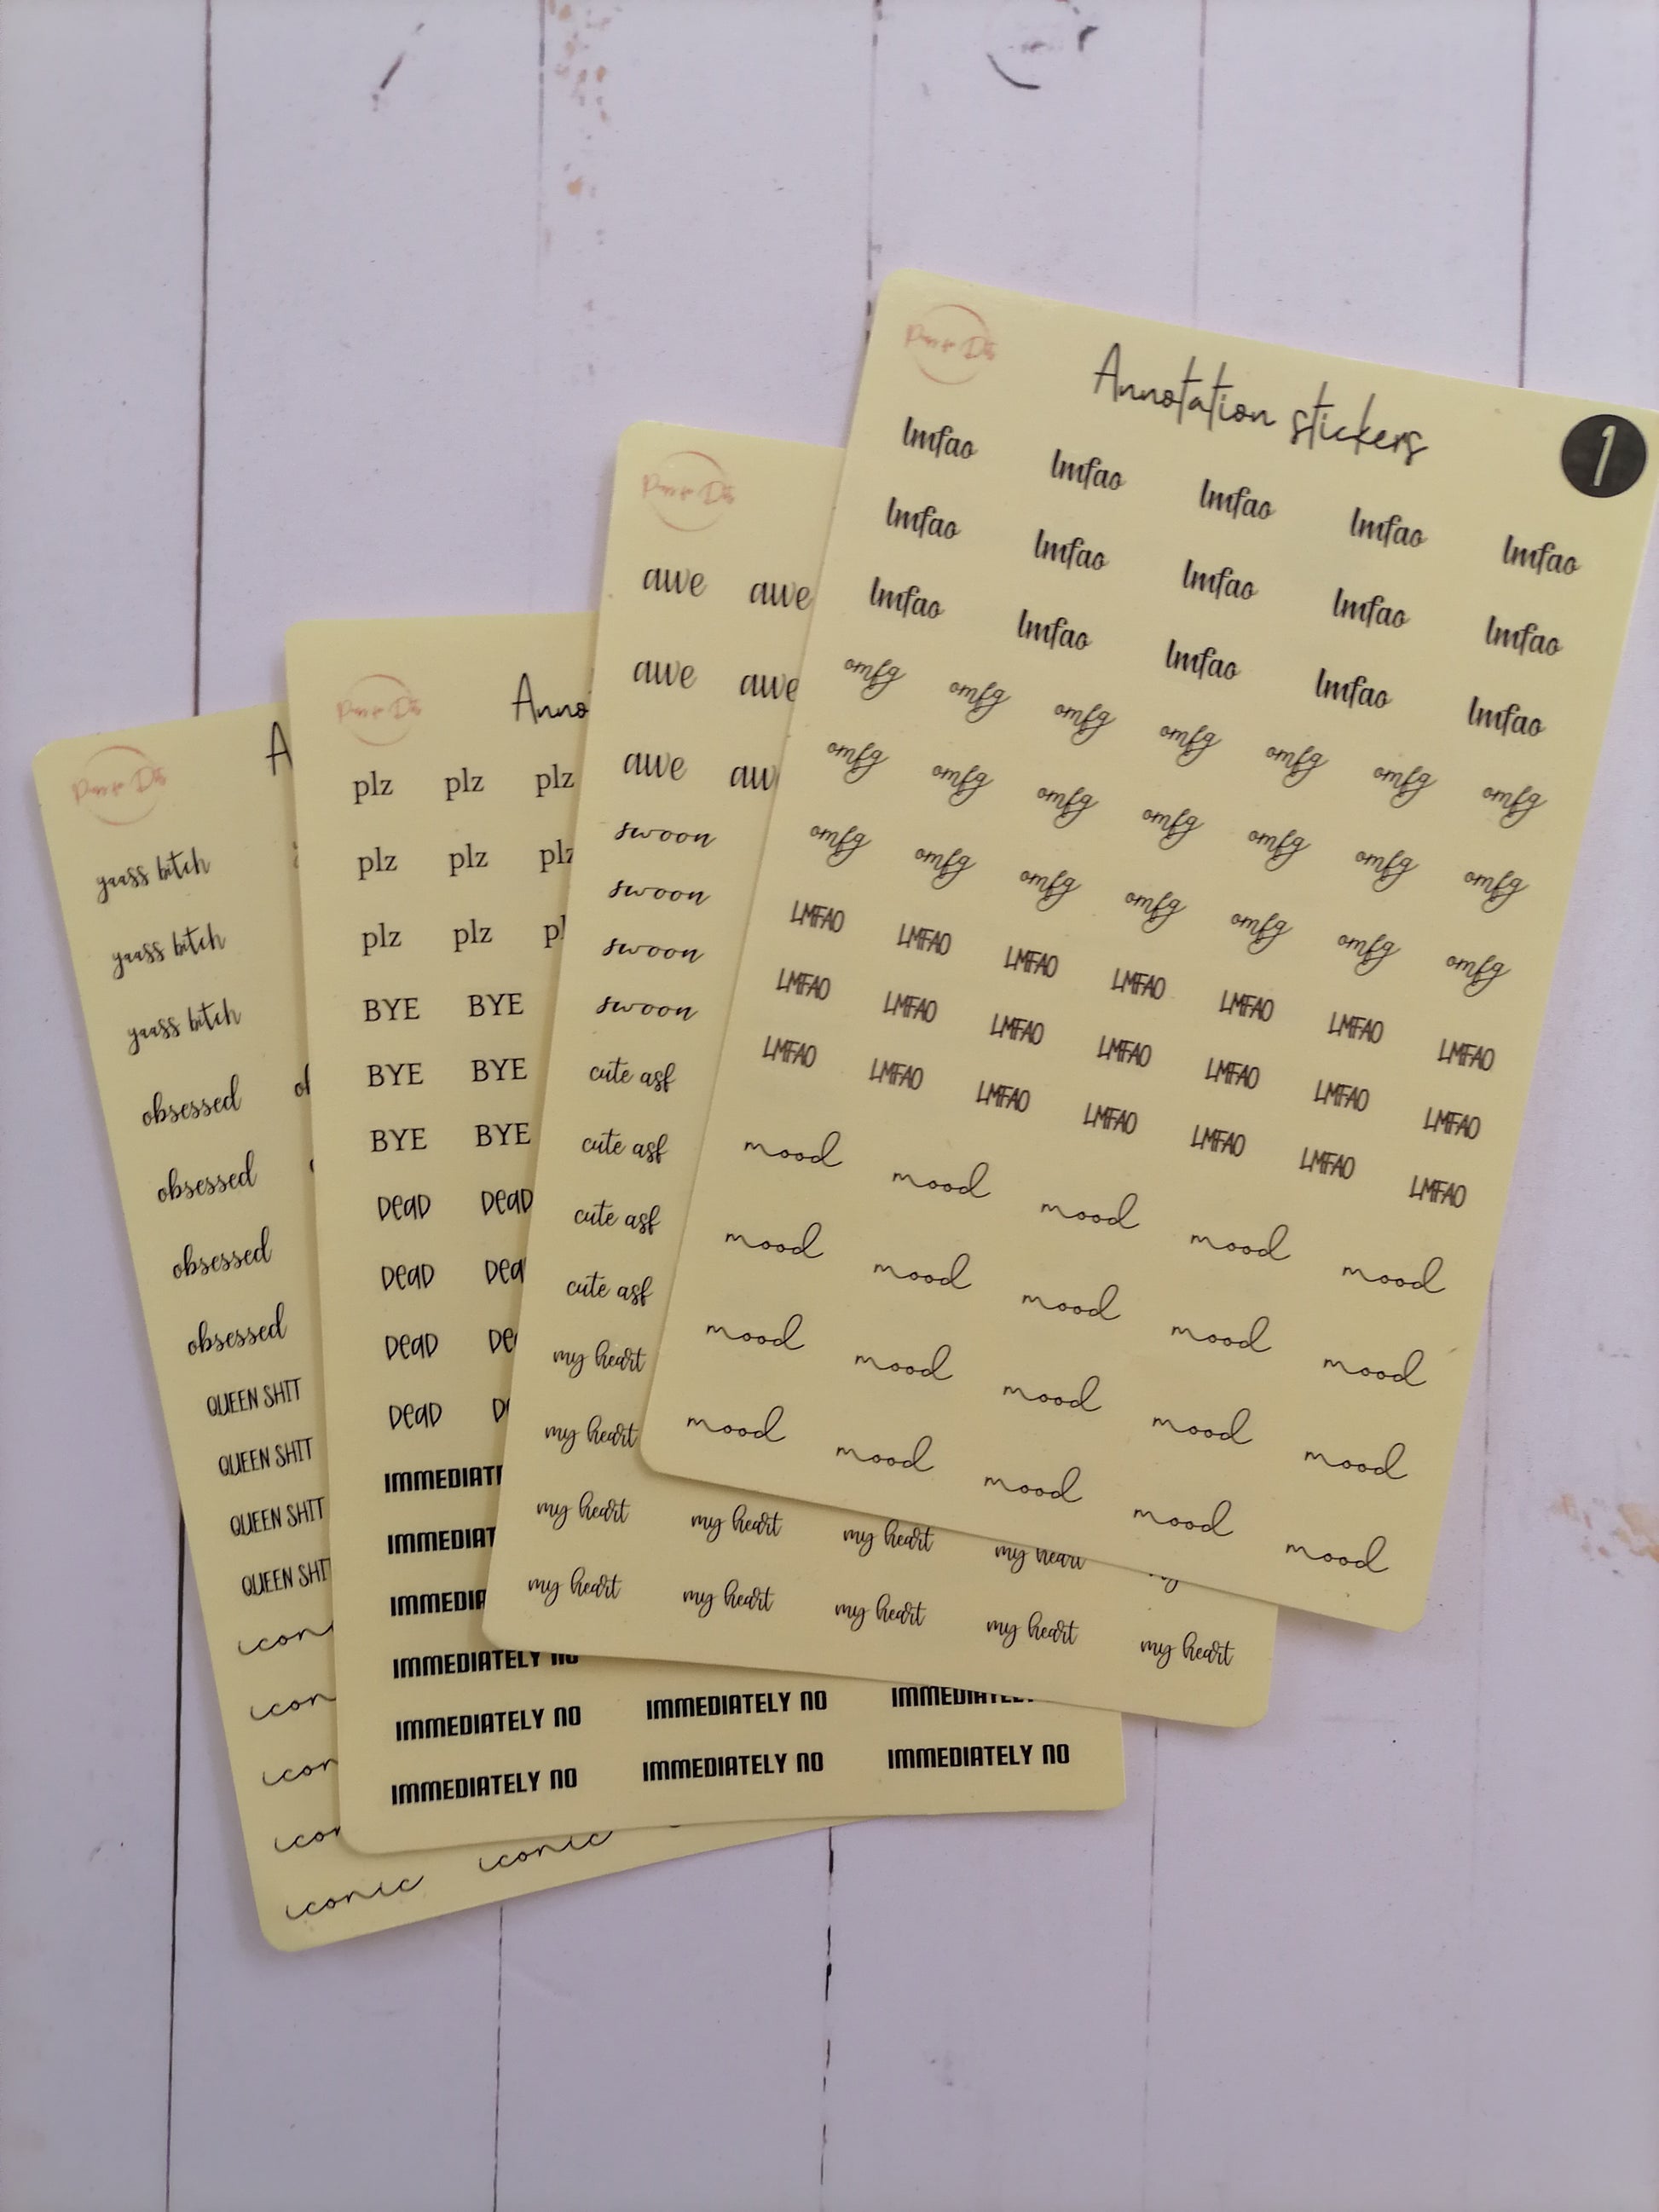 Annotation stickers
1
lmfao lmfao lmfao lmfao lmfao
lmfao lmfao lmfao lmfao lmfao
lmfao lmfao lmfao lmfao lmfao
omfg omfg omfg omfg omfg omfg omfg
omfg omfg omfg omfg omfg omfg omfg
omfg omfg omfg omfg omfg omfg omfg
LMFAO LMFAO LMFAO LMFAO LMFAO LMFAO LMFAO
LMFAO LMFAO LMFAO LMFAO LMFAO LMFAO LMFAO
LMFAO LMFAO LMFAO LMFAO LMFAO LMFAO LMFAO
mood mood mood mood mood
mood mood mood mood mood
mood mood mood mood mood
mood mood mood mood mood
awe awe
awe awe
awe aw
swoon
swoon
swoon
swoon
cute asf
cute asf
cute asf
cute asf
my heart
my heart
my heart my heart my heart my heart
my heart my heart my heart my heart my heart
Anno
plz plz plz
plz plz plz
plz plz pl
BYE BYE
BYE BYE
BYE BYE
DeaD DeaD
DeaD Dea
DeaD De
DeaD D
IMMEDIATE
IMMEDIAT
IMMEDIA
IMMEDIATELY NO
IMMEDIATELY NO IMMEDIATELY NO IMMEDIATELY
IMMEDIATELY NO IMMEDIATELY NO IMMEDIATELY NO
A
yaass bitch
yaass bitch
yaass bitch
obsessed ob
obsessed
obsessed
obsessed
QUEEN SHIT
QUEEN SHIT
QUEEN SHIT
QUEEN SHIT
iconi
icon
icon
icon
iconic iconic